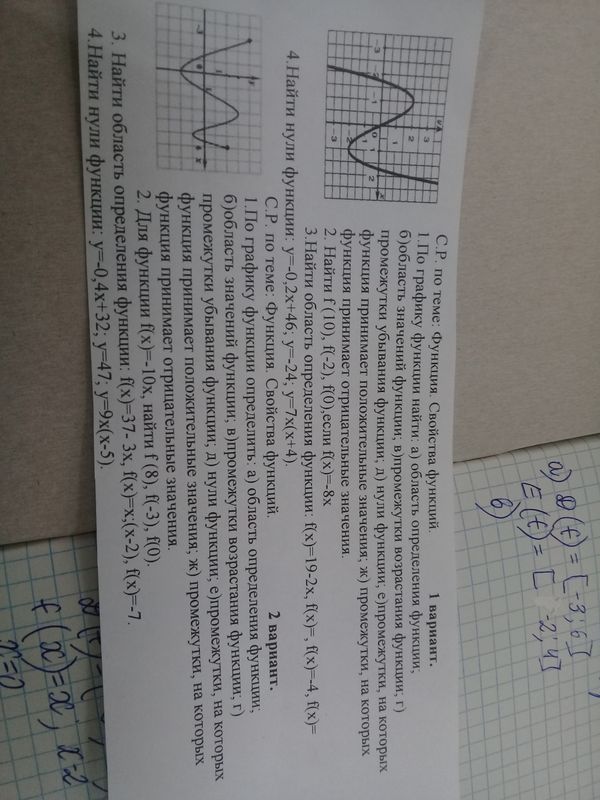 С.Р. по теме: Функция. Свойства функций. 1 вариант.
1.По графику функции найти: а) область определения функции,
б)область значений функции; в)промежутки возрастания функции; г)
промежутки убывания функции; д) нули функции; е)промежутки, на которых
функция принимает положительные значения; ж) промежутки, на которых
функция принимает отрицательные значения.
2. Найти f (10), f(-2), f(0),если f(x)=-8x
3.Найти область определения функции: f(x)=19-2x, f(x)= , f(x)=-4, f(x)=
4.Найти нули функции: y=-0,2x+46; y=-24; y=7x(x+4).
С.Р. по теме: Функция. Свойства функций. 2 вариант.
1.По графику функции определить: а) область определения функции;
б)область значений функции; в)промежутки возрастания функции; г)
промежутки убывания функции; д) нули функции; е)промежутки, на которых
функция принимает положительные значения; ж) промежутки, на которых
функция принимает отрицательные значения.
2. Для функции f(x)=-10x, найти f (8), f(-3), f(0).
3. Найти область определения функции: f(x)=37- 3x, f(x)=x;(x-2), f(x)=-7.
4.Найти нули функции: y=-0,4x+32; y=47; y=9x(x-5).
а) D(f) = [-3; 6]
E(f) = [-2; 4]
в)
f(x)=x; x-2